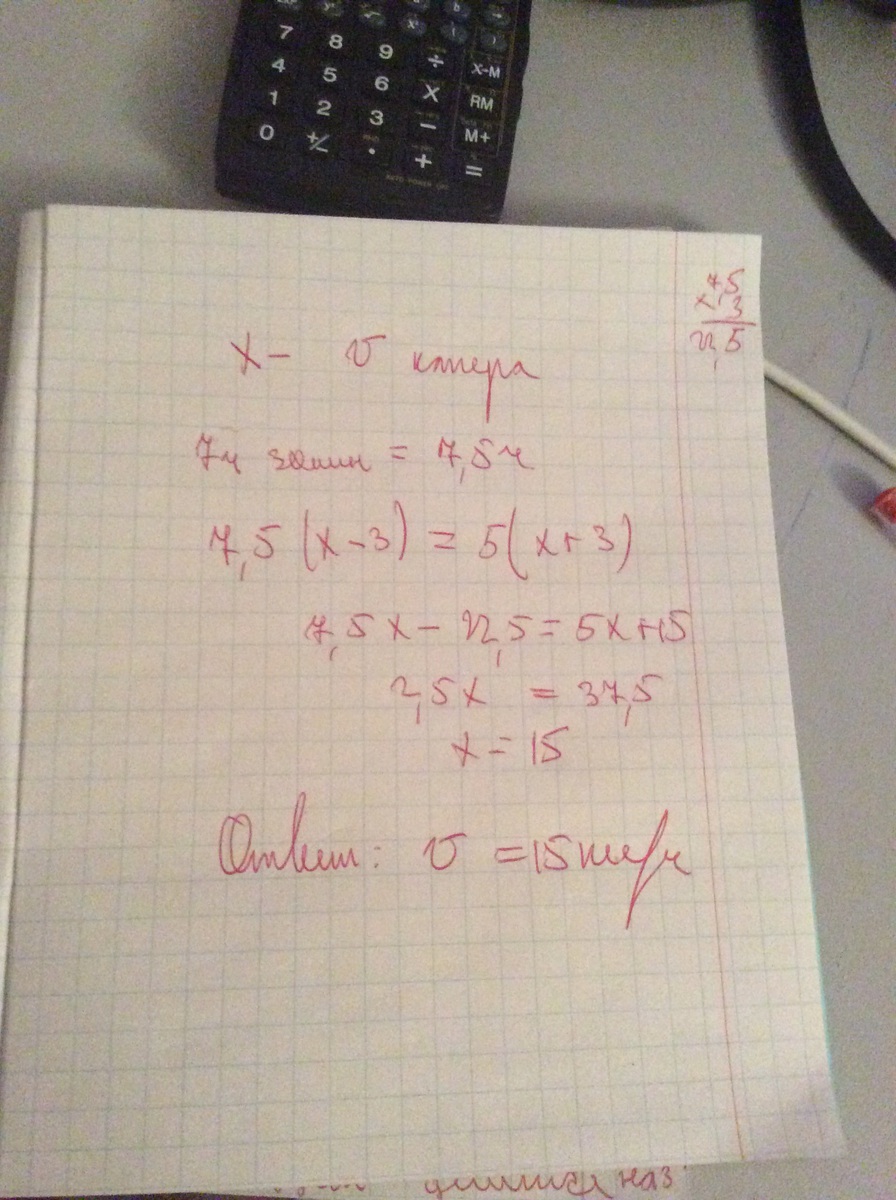 7 8 9 ÷ X-M
4 5 6 X RM
1 2 3 − M+
0 +/− · + =
7,5
× 3
22,5
x – v катера
7ч 30мин = 7,5ч
7,5 (x-3) = 5(x+3)
7,5x - 22,5 = 5x+15
2,5x = 37,5
x = 15
Ответ: v = 15км/ч
наз